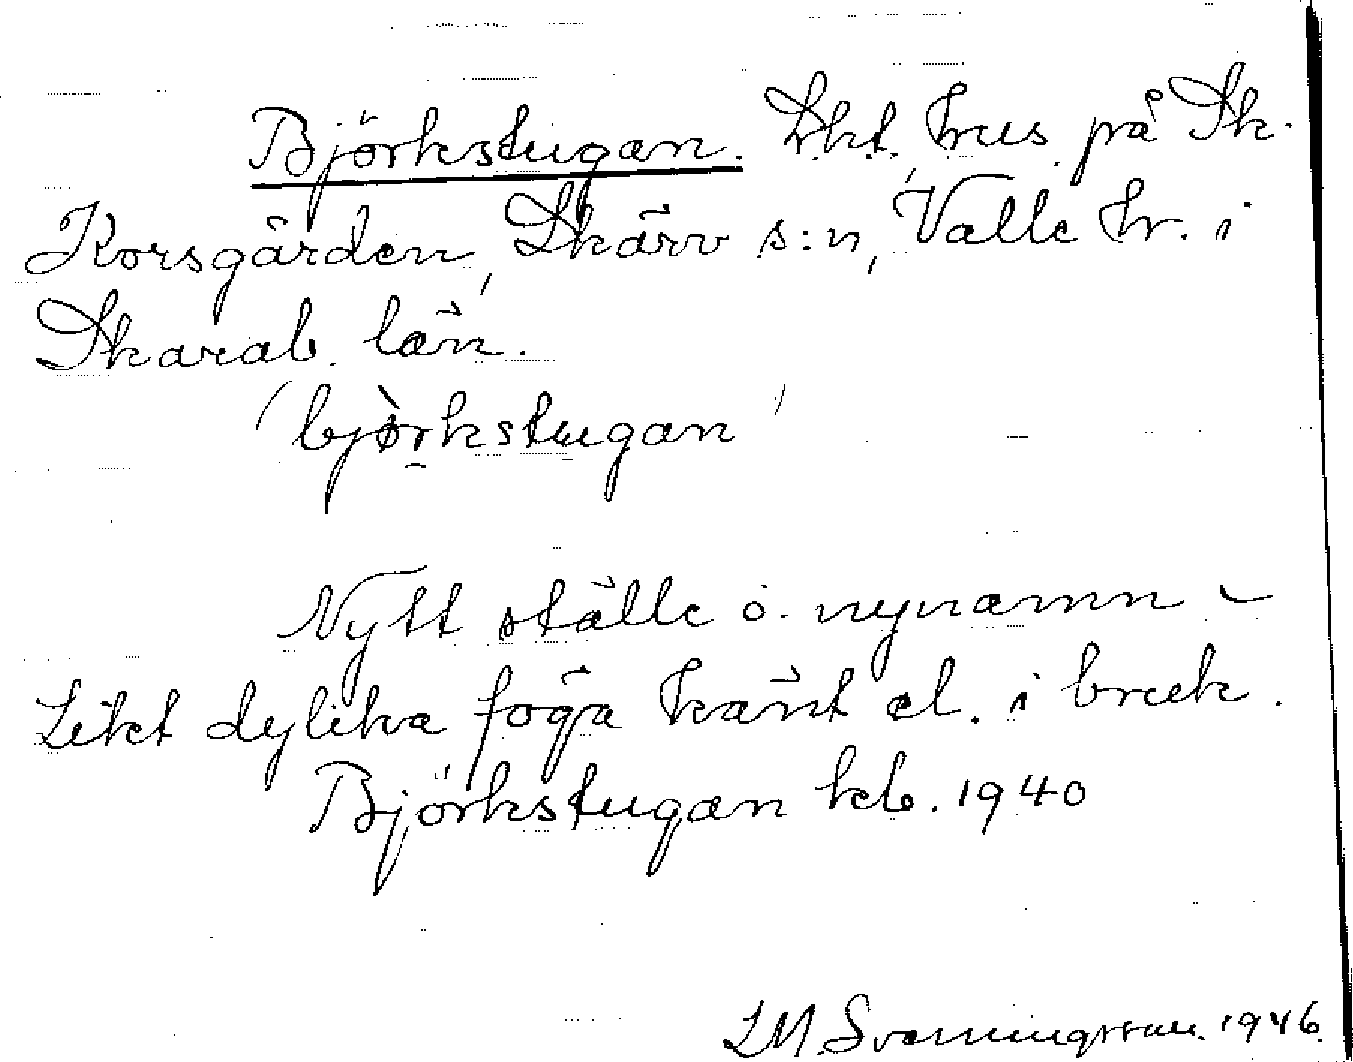 Björkstugan. Lht. hus på Sk.
Korsgården, Skärv s:n, Valle hr. i
Skarab. län.
'björkstugan'
Nytt ställe o. nynamn –
Likt dylika föga känt el. i bruk.
Björkstugan kb. 1940
LM. Svenningsson. 1946.